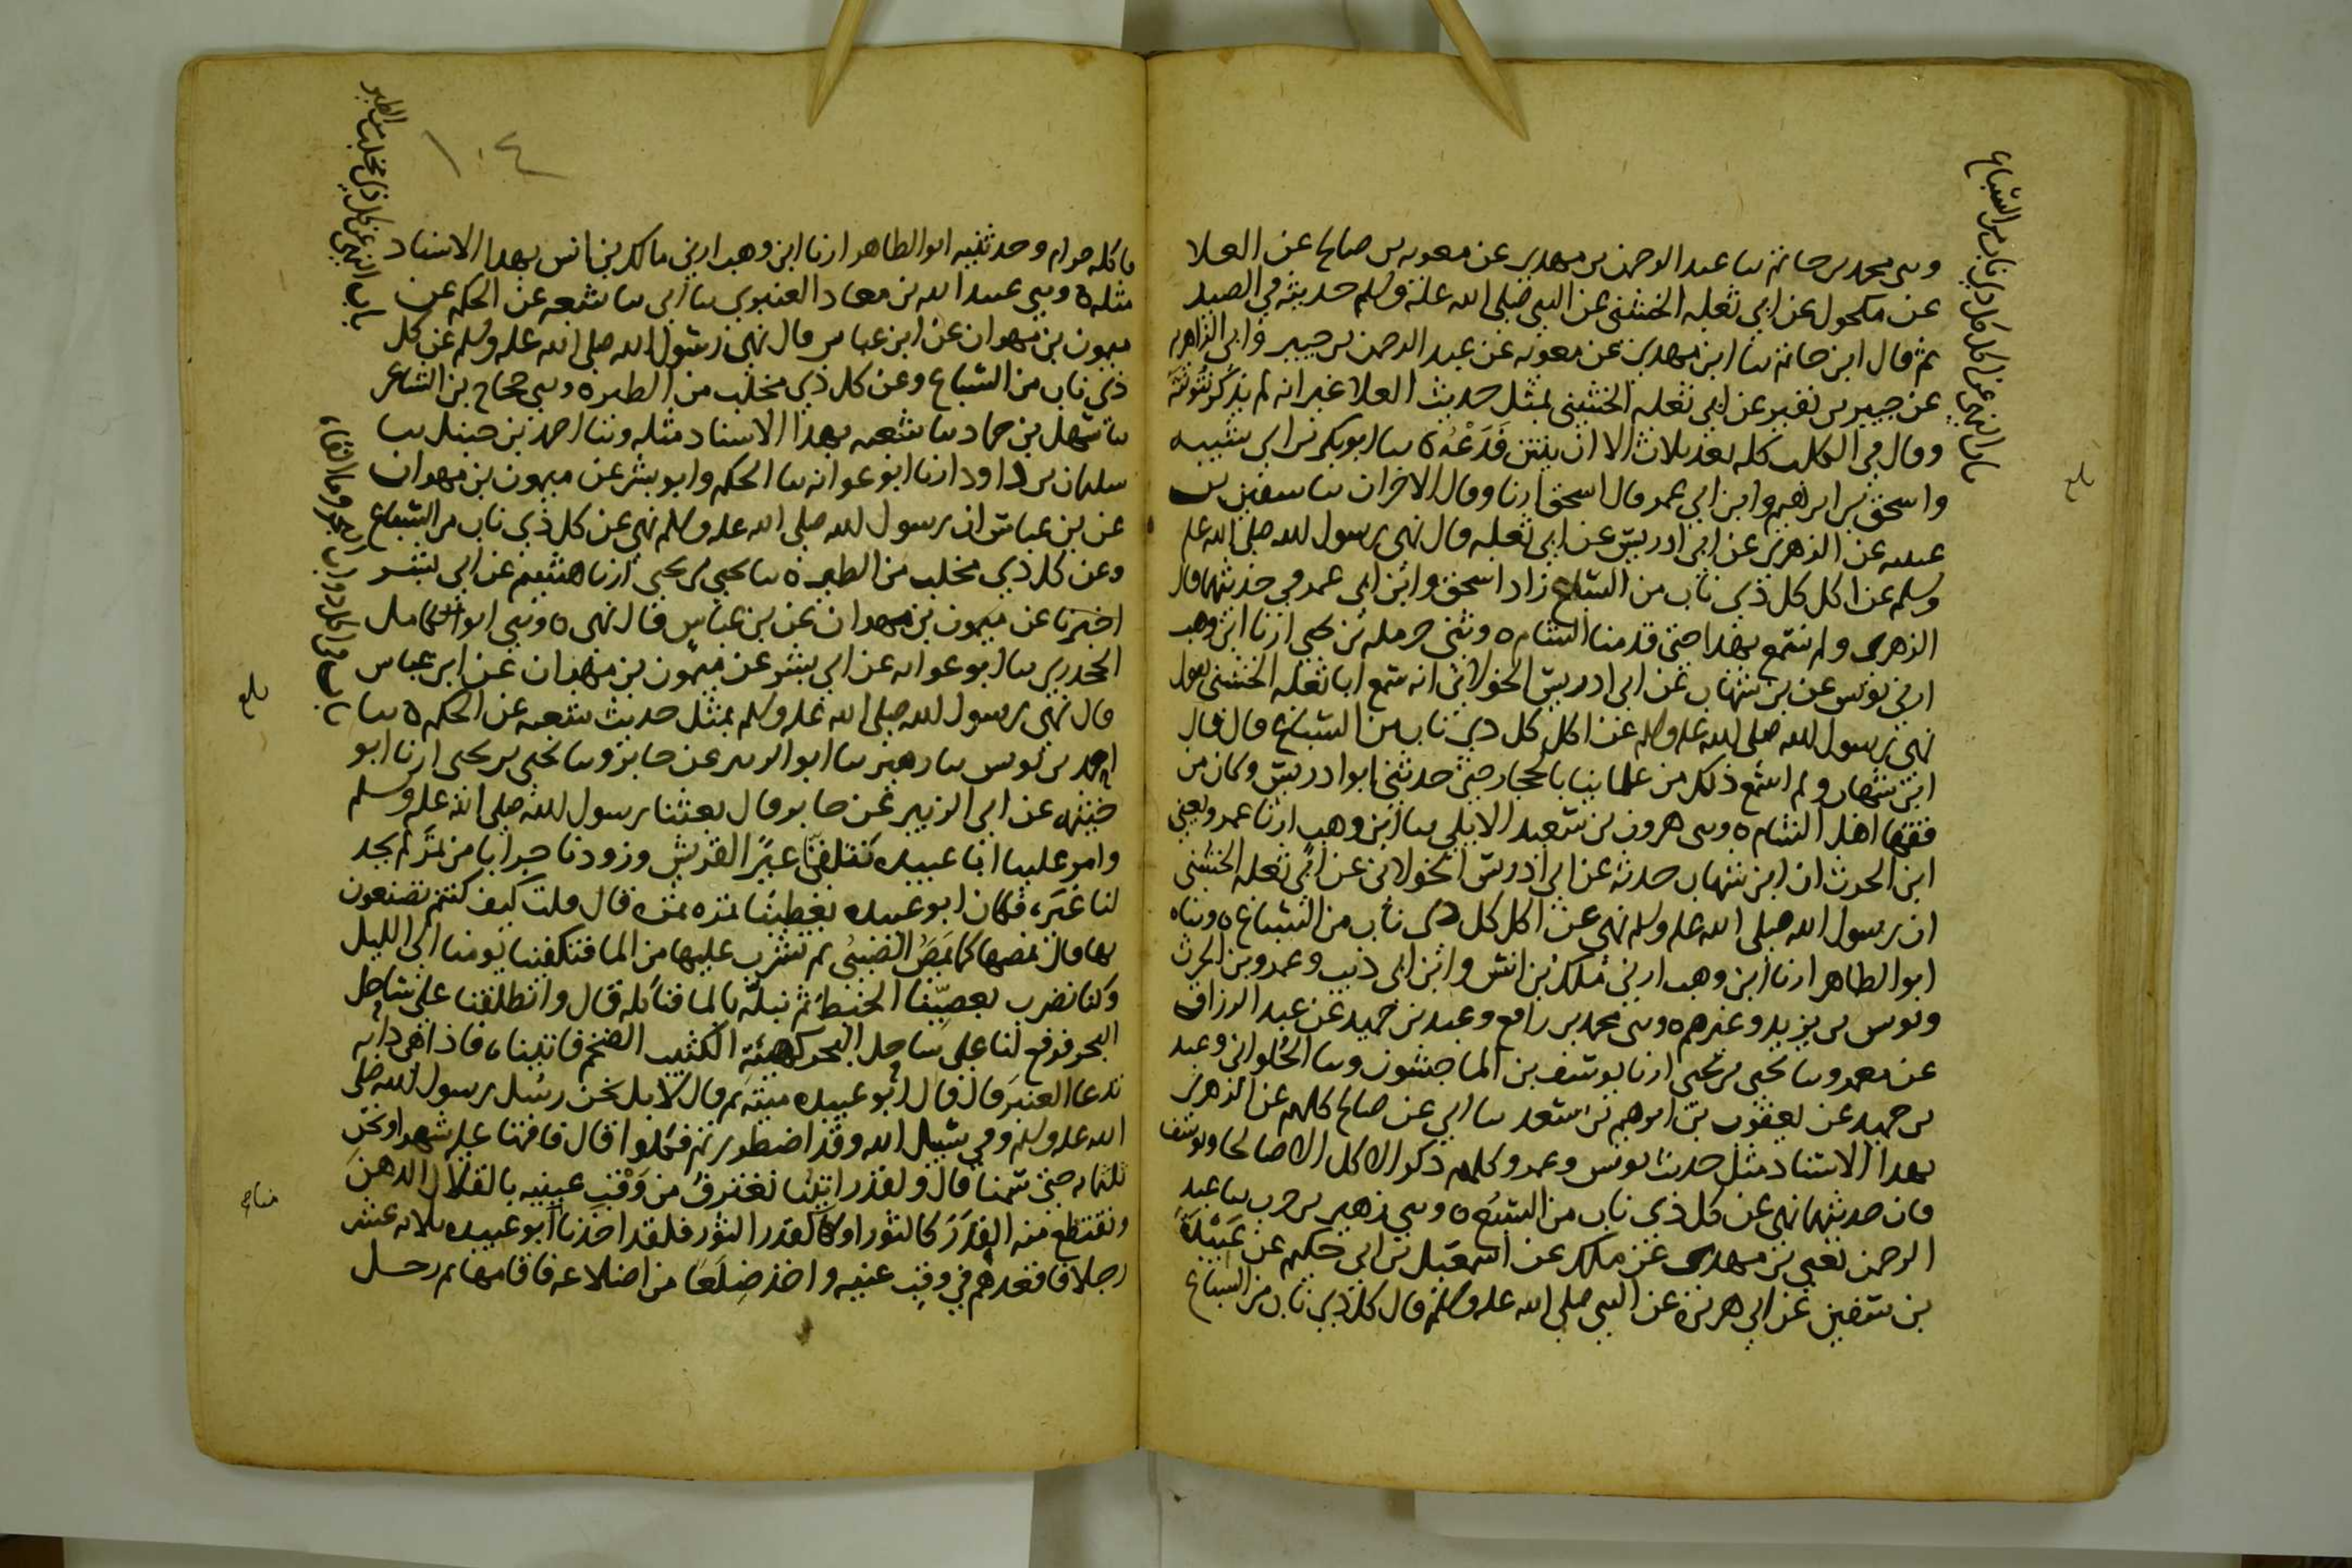 وىى محمد بن حاتم ىىا عبد الرحمن بن مهدى عن معويه بن صالح عن العلا
عن مكحول عن ابي ثعلبه الخشني عن النبي صلى الله عليه وسلم حديثه في الصيد
ثم قال ابن حاتم ىنا ابن مهدي عن معويه عن عبد الرحمن بن جبير وابي الزاهريه
عن جبير بن نفير عن ابي ثعلبه الخشني بمثل حديث العلا غير انه لم يذكر نتونته
وقال في الكلب كله بعد ثلاث الا ان ينتن فَدَعْهُ ه ىىا ابو بكر بن ابي شيبه
واسحق بن ابرهيم وابن ابي عمر قال اسحق ارنا وقال الاخران ىىا سفين بن
عيينه عن الزهري عن ابي ادريس عن ابي ثعلبه قال نهى رسول الله صلى الله عليه
وسلم عن اكل كل ذي ناب من السباع زاد اسحق وابن ابي عمر في حديثهما قال
الزهري ولم نسمع بهذا حتى قدمنا الشام ه وثنى حرمله بن يحيى ارنا ابن وهب
ارنى يونس عن بن شهاب عن ابي ادريس الخولاني انه سمع ابا ثعلبه الخشني يقول
نهى رسول الله صلى الله عليه وسلم عن اكل كل ذي ناب من السباع قال قال
ابن شهاب ولم اسمع ذلك من علمائنا بالحجاز حتى حدثني ابو ادريس وكان من
فقها اهل الشام ه وىى هرون بن سعيد الايلي ىىا ابن وهب ارنا عمرو يعني
ابن الحرث ان ابن شهاب حدثه عن ابي ادريس الخولاني عن ابي ثعلبه الخشني
ان رسول الله صلى الله عليه وسلم نهى عن اكل كل ذى ناب من السباع ه وىناه
ابو الطاهر ارنا ابن وهب ارنى ملك بن انس وابن ابي ذئب وعمرو بن الحرث
ويونس بن يزيد وغيرهم ه وىى محمد بن رافع وعبد بن حميد عن عبد الرزاق
عن معمر وىىا يحيى بن يحيى ارنا يوسف بن الماجشون وىىا الحُلواني وعبد
بن حميد عن يعقوب بن ابرهيم بن سعد ىىا ابي عن صالح كلهم عن الزهري
بهدا الاسناد مثل حديث يونس وعمرو كلهم ذكر الاكل الا صالحا ويوسف
فان حديثهما نهى عن كل ذي ناب من السَبُع ه وىى زهير بن حرب ىىا عبد
الرحمن يعني بن مهدى عن ملك عن اسمعيل بن ابي حكيم عن عَبِيْدَةَ
بن سفين عن ابي هريره عن النبي صلى الله عليه وسلم قال كل ذي ناب من السباع
باب النهي عن اكل كل ذي ناب من السباع
بلغ
١٠٤
فاكله حرام وحدثنيه ابو الطاهر ارنا ابن وهب ارنى مالك بن انس بهدا الاسناد
مثله ه وىى عبيد الله بن معاد العنبري ىىا ابي ىىا شعبه عن الحكم عن
ميمون بن مهران عن ابن عباس قال نهى رسول الله صلى الله عليه وسلم عن كل
ذي ناب من السباع وعن كل ذي مخلب من الطير ه وىى حجاج بن الشاعر
ىىا سهل بن حماد ىىا شعبه بهذا الاسناد مثله وىنا احمد بن حنبل ىىا
سليمان بن داود ارنا ابو عوانه ىىا الحكم وابو بشر عن ميمون بن مهران
عن بن عباس ان رسول الله صلى الله عليه وسلم نهى عن كل ذي ناب من السباع
وعن كل ذي مخلب من الطير ه ىىا يحيى بن يحيى ارنا هشيم عن ابي بشر
اخبرنا عن ميمون بن مهران عن بن عباس قال نهى ه وىى ابو كامل
الجحدري ىىا ابو عوانه عن ابي بشر عن ميمون بن مهران عن ابن عباس
قال نهى رسول الله صلى الله عليه وسلم بمثل حديث شعبه عن الحكم ه ىىا
احمد بن يونس ىىا زهير ىىا ابو الزبير عن جابر وىىا يحيى بن يحيى ارنا ابو
خيثمه عن ابي الزبير عن جابر قال بعثنا رسول الله صلى الله عليه وسلم
وامر علينا ابا عبيده نتلقى عيرًا لقريش وزودنا جرابا من تمر لم يجد
لنا غيره فكان ابو عبيده يعطينا تمره تمره قال قلت كيف كنتم تصنعون
بها قال نمصها كما يَمَصُ الصبىُ ثم نشرب عليها من الما فتكفينا يومنا الى الليل
وكنا نضرب بعِصِيِّنا الخبط ثم نبلّه بالما فنأكله قال وانطلقنا على ساحل
البحر فرفع لنا على ساحل البحر كهيئةِ الكثيب الضخم فاتيناه فاذا هي دابه
تدعا العنبر قال قال ابو عبيده ميته ثم قال لا بل نحن رسل رسول الله صلى
الله عليه وسلم وفي سبيل الله وقد اضطررتم فكلوا قال فاقمنا عليه شهرا ونحن
ثلثمايه حتى سمنا قال ولقد رايتُنا نغترفُ من وَقْبِ عينيه بالقلال الدهنَ
ونقتطع منه الفِدَرَ كالثور او كقدر الثور فلقد اخذ منا ابو عبيده ثلاثه عشر
رجلا فاقعدهم في وقب عينيه واخذ ضِلَعًا من اضلاعه فاقامها ثم رحل
باب النهي عن كل ذي مخلب من الطير
باب في اكل دواب البحر وما القاه
بلغ